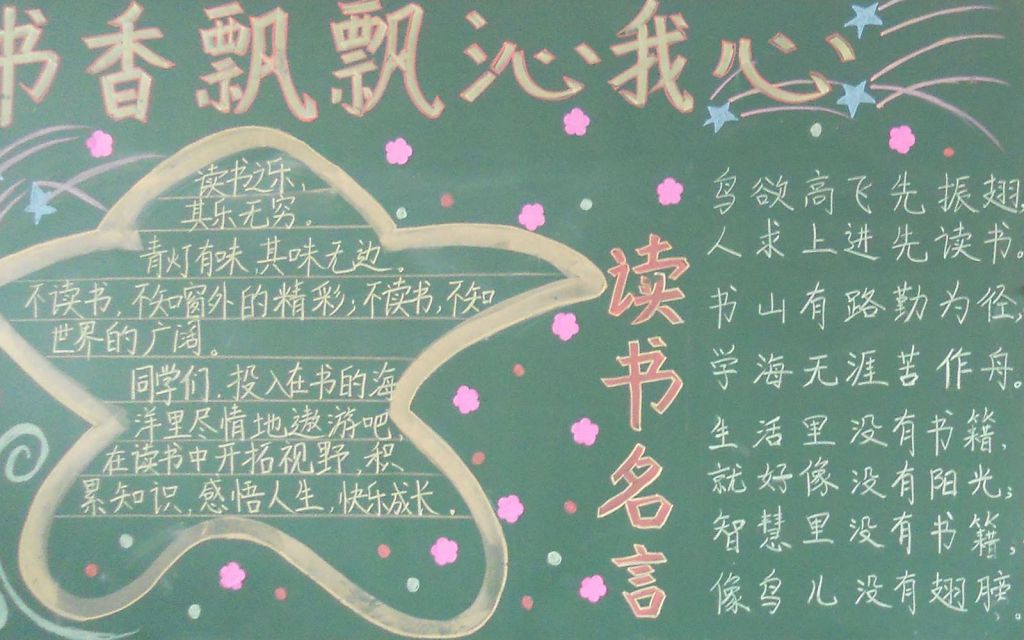 书香飘飘沁我心
读书之乐,
其乐无穷。
青灯有味,其味无边。
不读书,不知窗外的精彩;不读书,不知
世界的广阔。
同学们,投入在书的海
洋里尽情地遨游吧,
在读书中开拓视野,积
累知识,感悟人生,快乐成长。
读书名言
鸟欲高飞先振翅,
人求上进先读书。
书山有路勤为径,
学海无涯苦作舟。
生活里没有书籍,
就好像没有阳光;
智慧里没有书籍,
像鸟儿没有翅膀。